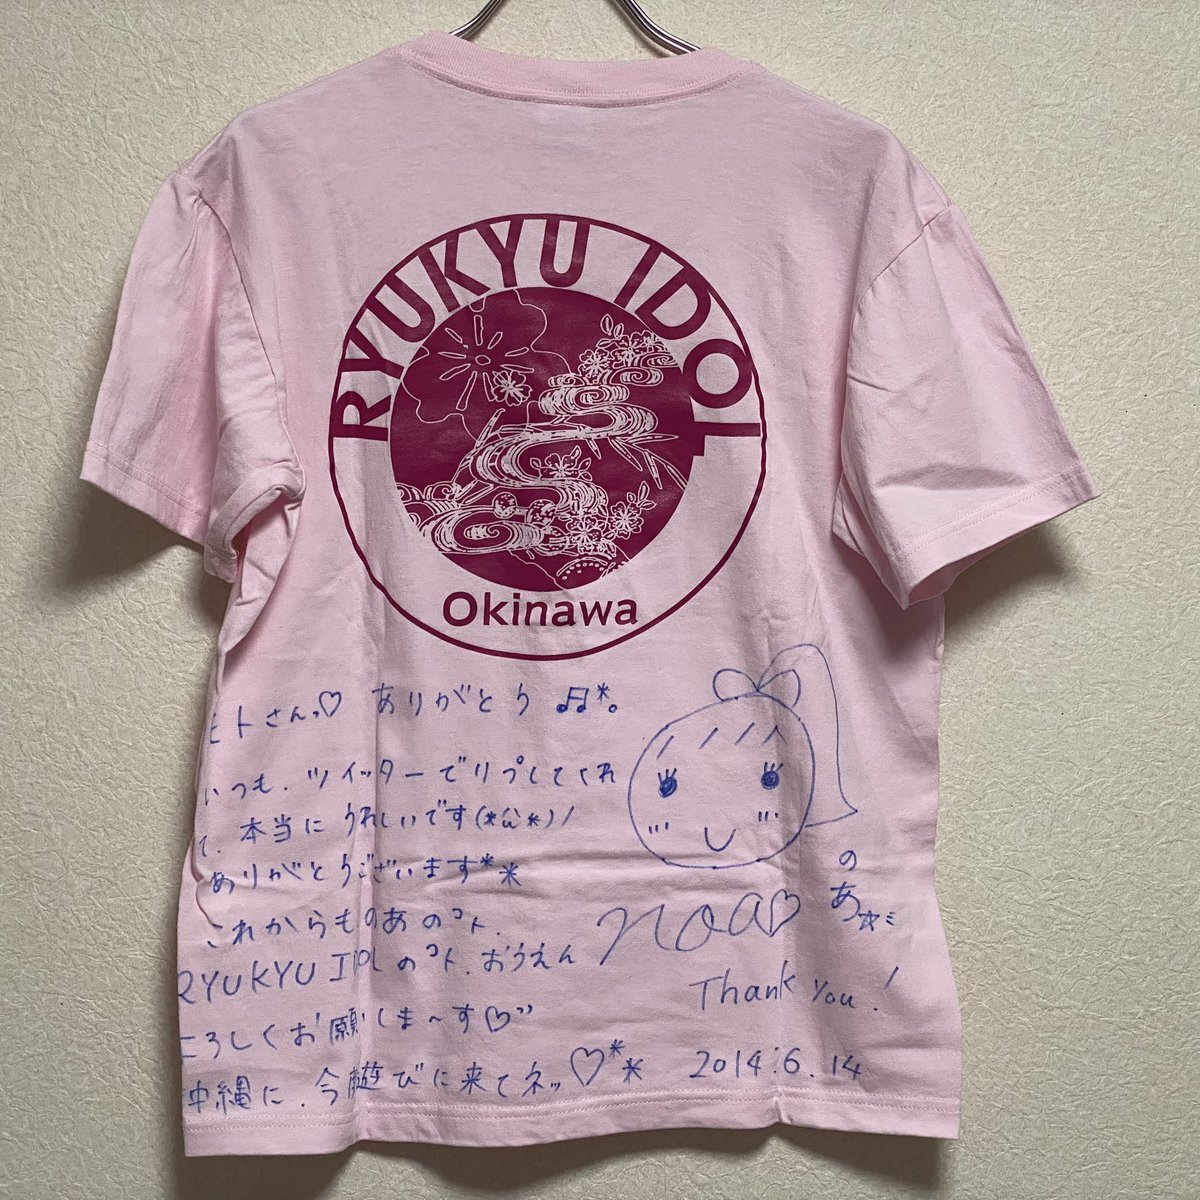 RYUKYU IDOL
Okinawa
モトさんっ♡ ありがとう ♬*。
いつも、ツイッターでリプしてくれ
て、本当にうれしいです(*'ω'*)ﾉ
ありがとうございます**
これからものあのコト、
RYUKYU IDOLのコト、おうえん
よろしくお願しま〜す♡''
沖縄に、今度遊びに来てネッ♡**
のあ☆ミ
noa♡
Thank you!
2014.6.14